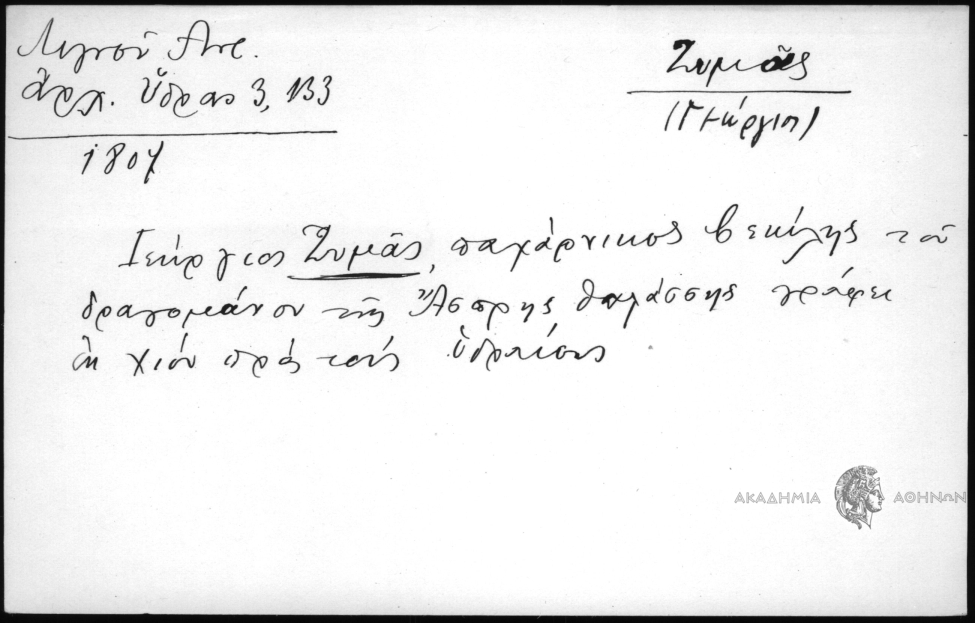 Λιγνοῦ Ἀντ.
ἀρχ. Ὕδρας 3, 133
1807
Ζυμᾶς
(Γεώργιος)
Γεώργιος Ζυμᾶς, παχάρνικος βεκίλης τοῦ
δραγομάνου τῆς Ἄσπρης θαλάσσης γράφει
ἐκ Χίου πρὸς τοὺς Ὑδραίους
ΑΚΑΔΗΜΙΑ ΑΘΗΝΩΝ